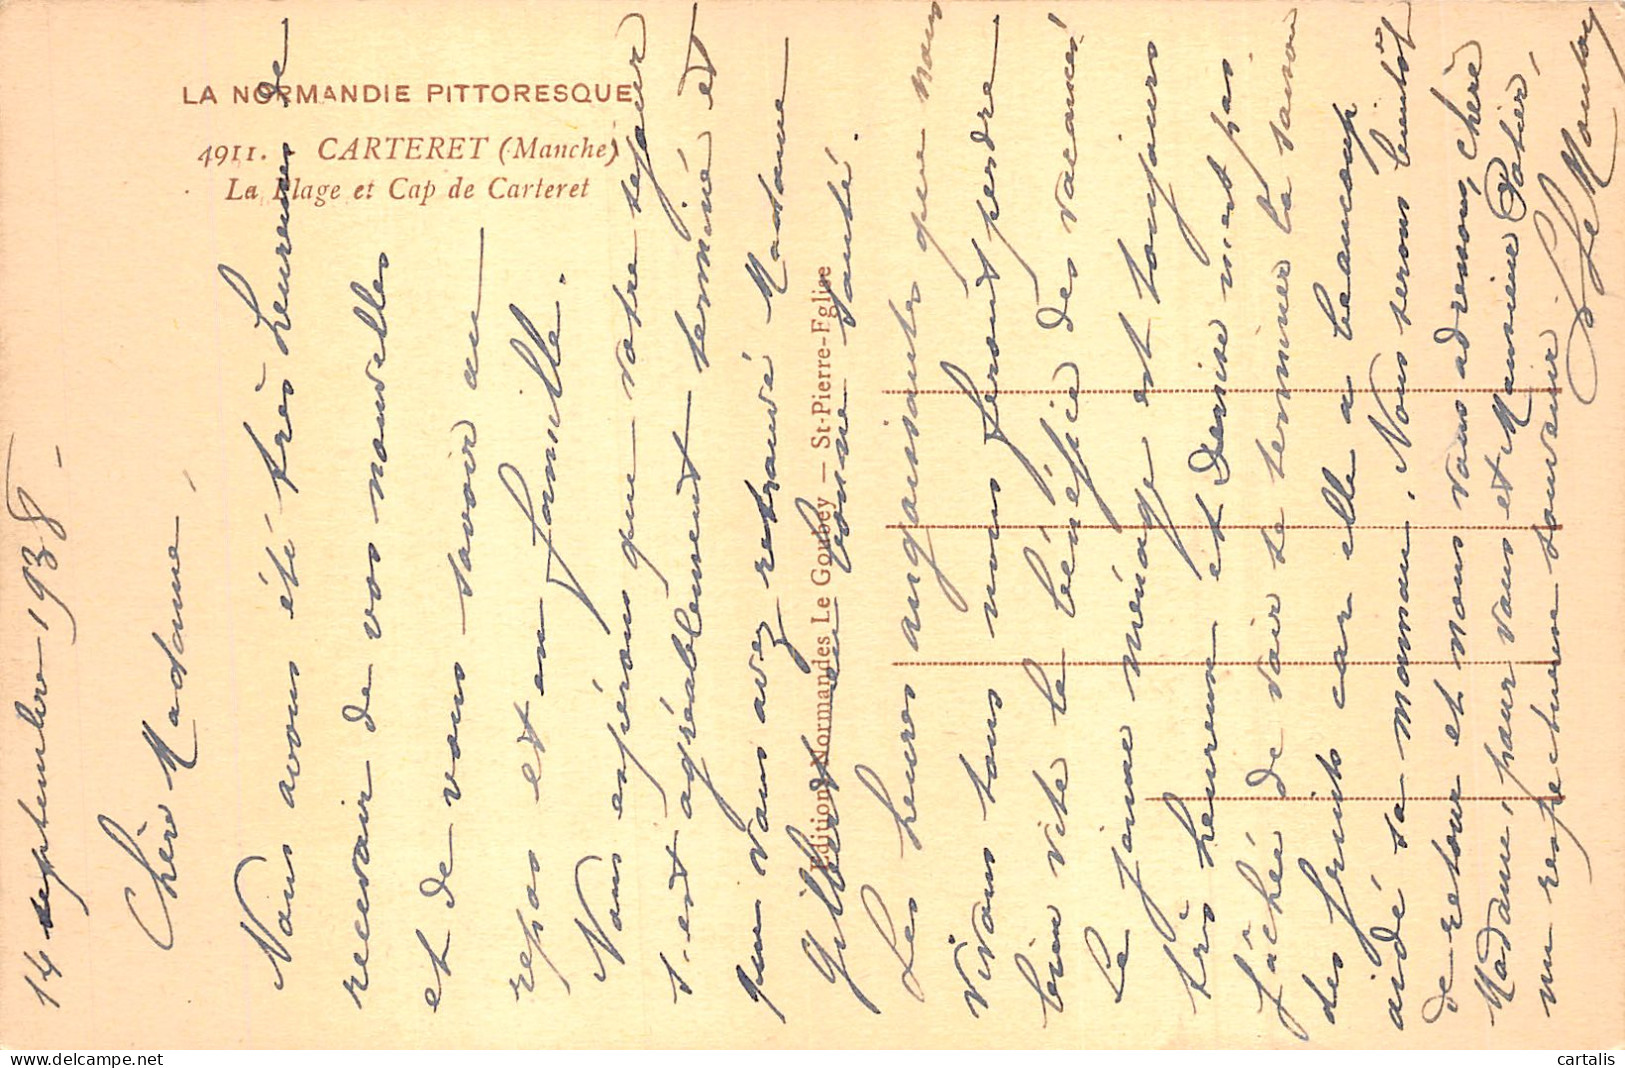 LA NORMANDIE PITTORESQUE
4911. - CARTERET (Manche)
La Plage et Cap de Carteret
Editions Normandes Le Goubey - St-Pierre-Eglise
14 septembre 1938 -
Chère Madame,
Nous avons été très heureuses de
recevoir de vos nouvelles
et de vous savoir au
repos et en famille.
Nous espérons que votre séjour
s'est agréablement terminé et
que vous avez retrouvé Madame
Gilberte en bonne santé.
Les heures angoissantes que nous
vivons tous nous feront perdre
bien vite le bénéfice des vacances
Le jeune ménage est toujours
très heureux et Denise n'est pas
fâchée de voir se terminer la saison
des fruits car elle a beaucoup
aidé sa maman. Nous serons bientôt
de retour et nous vous adressons, chère
Madame, pour vous et Monsieur
un respectueux souvenir
cartalis
delcampe.net